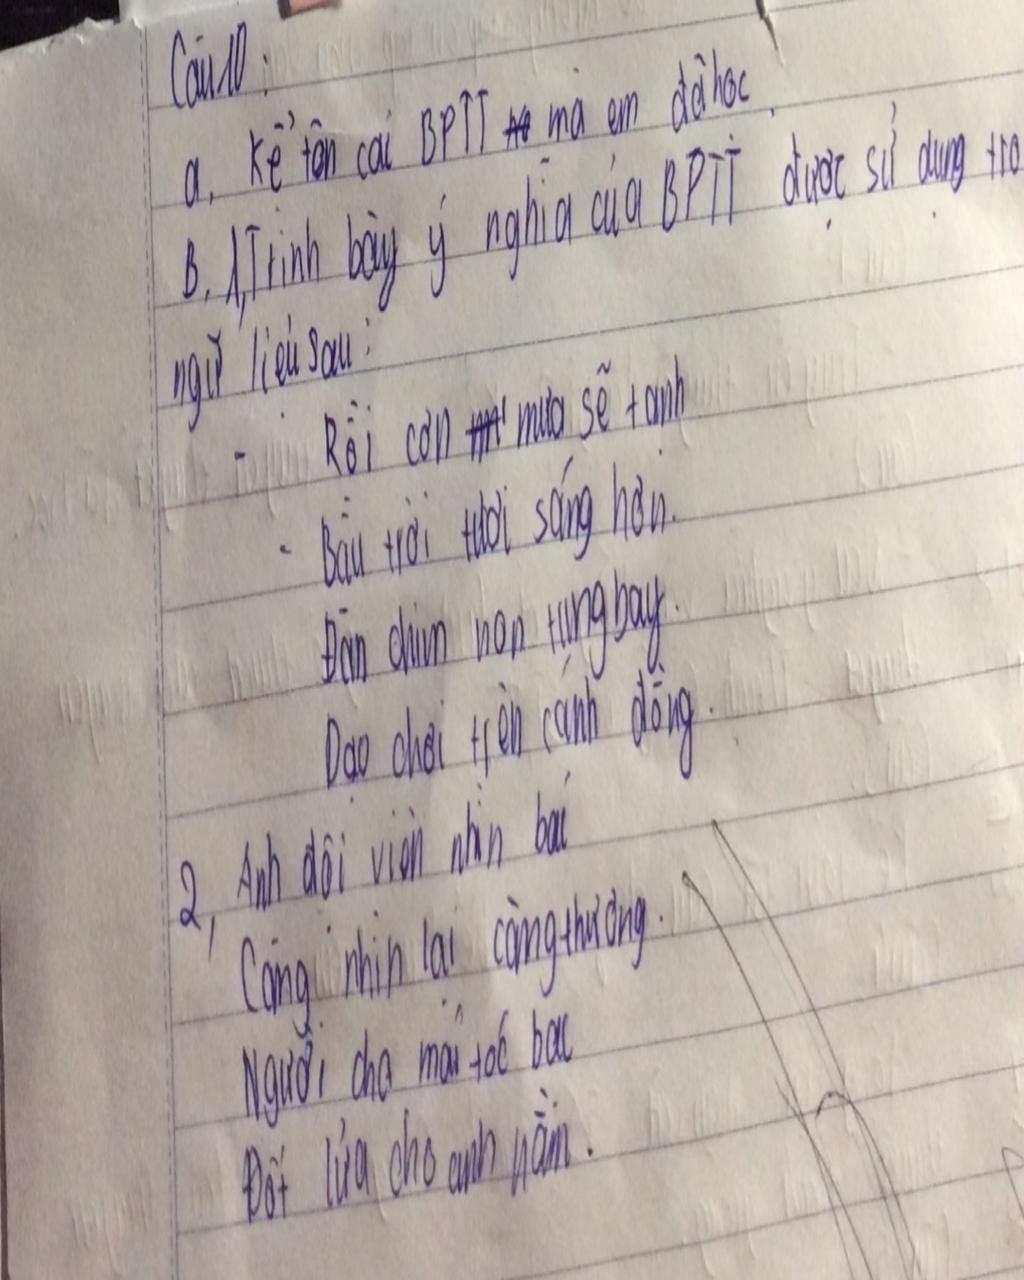 Câu 10:
a, Kể tên cái BPTT mà em đã học
B, 1, Trình bày ý nghĩa của BPTT được sử dụng tro
ngữ liệu sau:
- Rồi cơn mưa sẽ tạnh
- Bầu trời tươi sáng hơn.
Đàn chim non tung bay.
Dạo chơi trên cánh đồng.
2, Anh đội viên nhìn bác
Càng nhìn lại càng thương.
Người cha mái tóc bạc
Đốt lửa cho anh nằm.